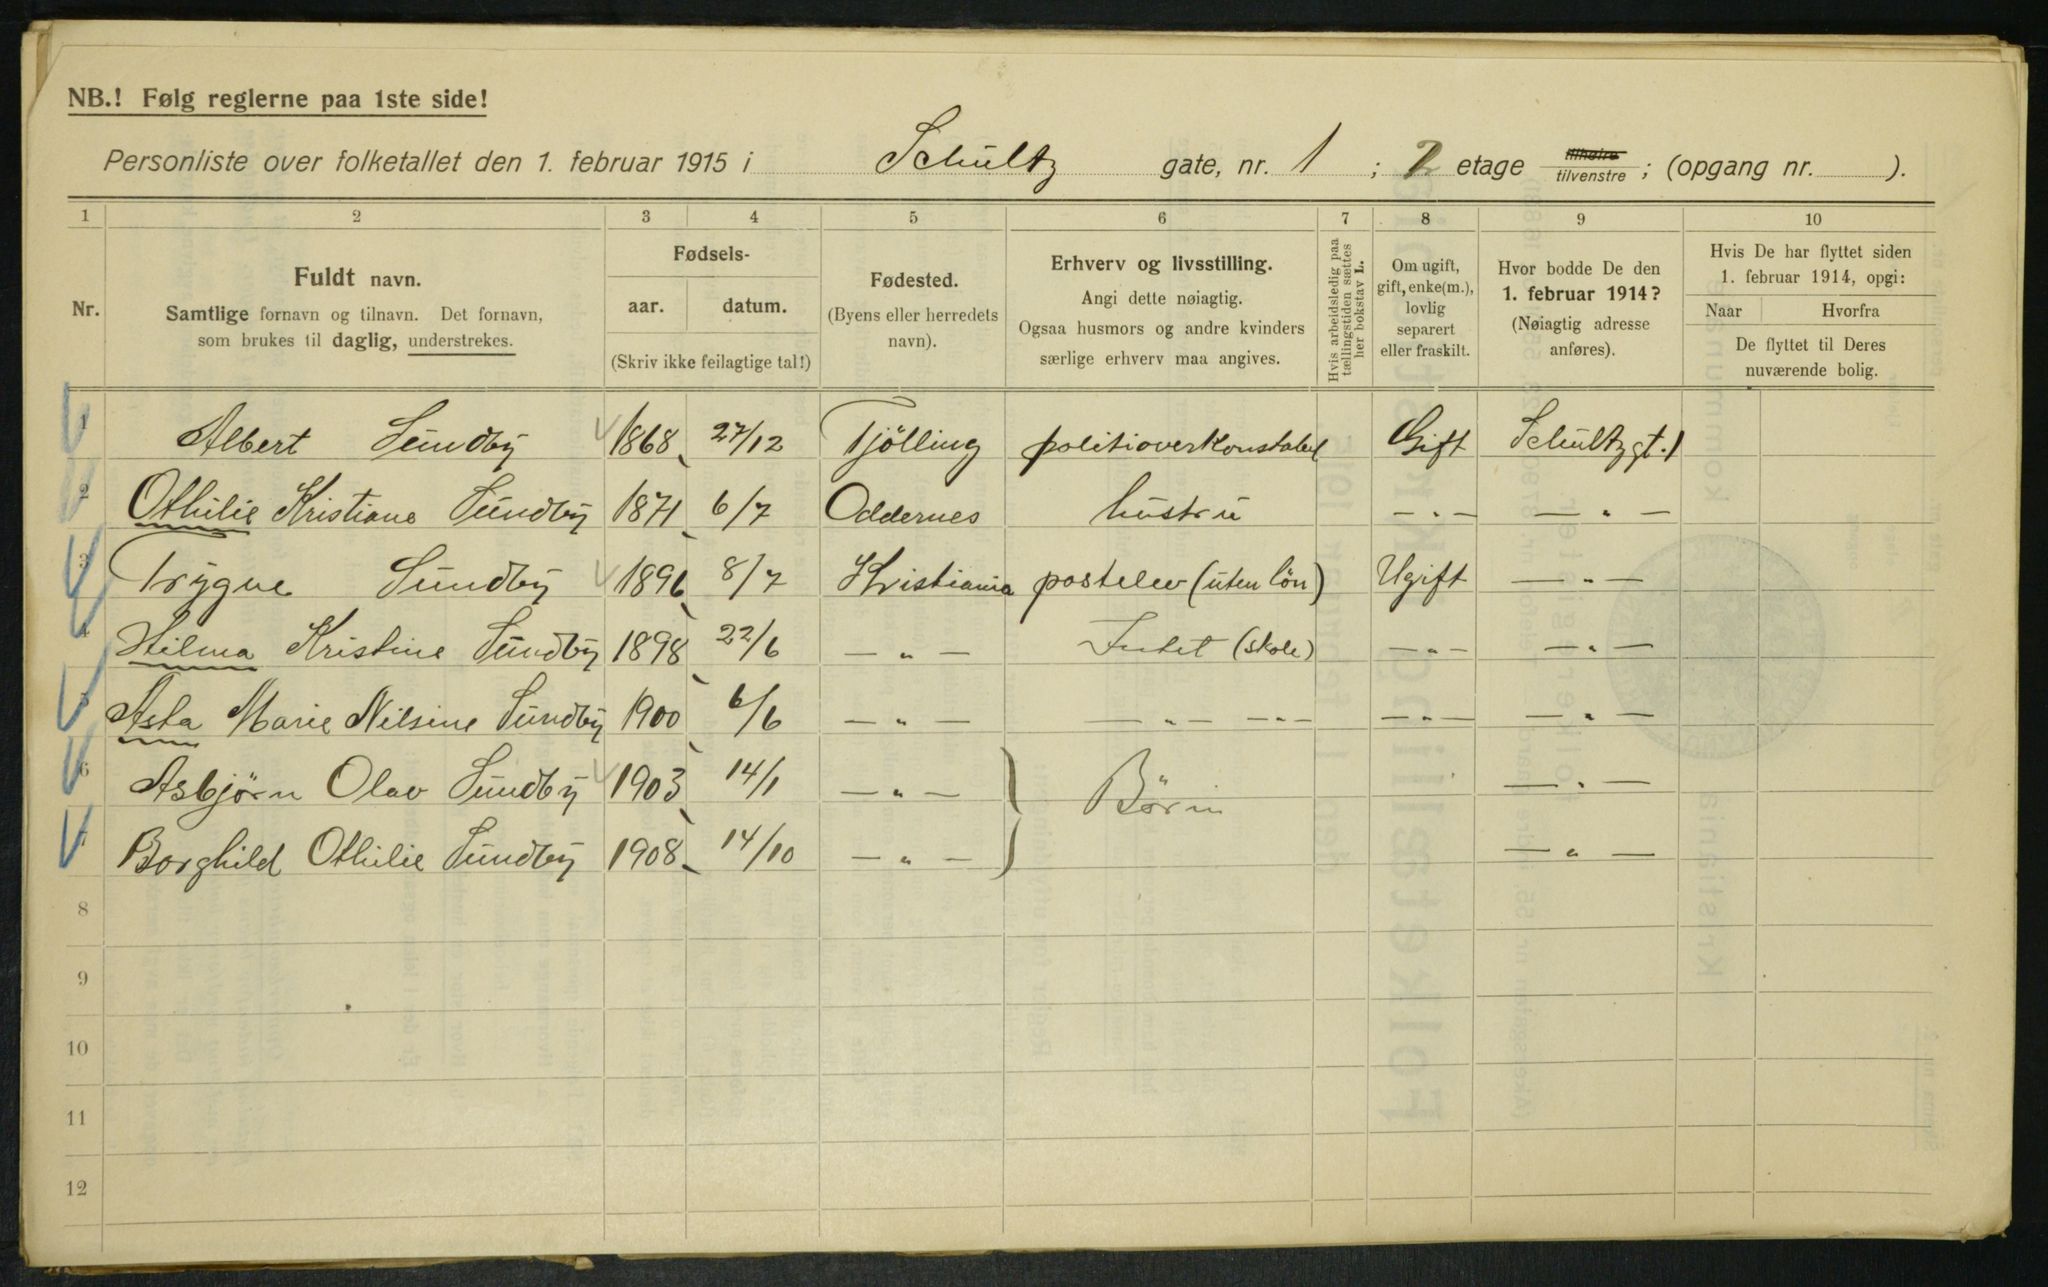 NB.! Følg reglerne paa 1ste side!
Personliste over folketallet den 1. februar 1915 i Schultz gate, nr. 1 ; 2 etage tilhøire tilvenstre ; (opgang nr. ).
1 2 3 4 5 6 7 8 9 10
Nr.
Fuldt navn.
Samtlige fornavn og tilnavn. Det fornavn,
som brukes til daglig, understrekes.
Fødsels-
aar. datum.
(Skriv ikke feilagtige tal!)
Fødested.
(Byens eller herredets
navn).
Erhverv og livsstilling.
Angi dette nøiagtig.
Ogsaa husmors og andre kvinders
særlige erhverv maa angives.
Hvis arbeidsledig paa
tællingstiden sættes
her bokstav L.
Om ugift,
gift, enke(m.),
lovlig
separert
eller fraskilt.
Hvor bodde De den
1. februar 1914?
(Nøiagtig adresse
anføres).
Hvis De har flyttet siden
1. februar 1914, opgi:
Naar Hvorfra
De flyttet til Deres
nuværende bolig.
1 Albert Sundby 1868 27/12 Tjölling politioverkonstabel Gift Schultzgt. 1
2 Othilie Kristiane Sundby 1871 6/7 Oddernes hustru — " — — " —
3 Trygve Sundby 1896 8/7 Kristiania postelev (uten lön) Ugift — " —
4 Hilma Kristine Sundby 1898 22/6 — " — Intet (skole) — " — — " —
5 Asta Marie Nilsine Sundby 1900 6/6 — " — — " — — " — — " — — " —
6 Asbjörn Olav Sundby 1903 14/1 — " — } Börn — " —
7 Borghild Othilie Sundby 1908 14/10 — " — — " —
8
9
10
11
12